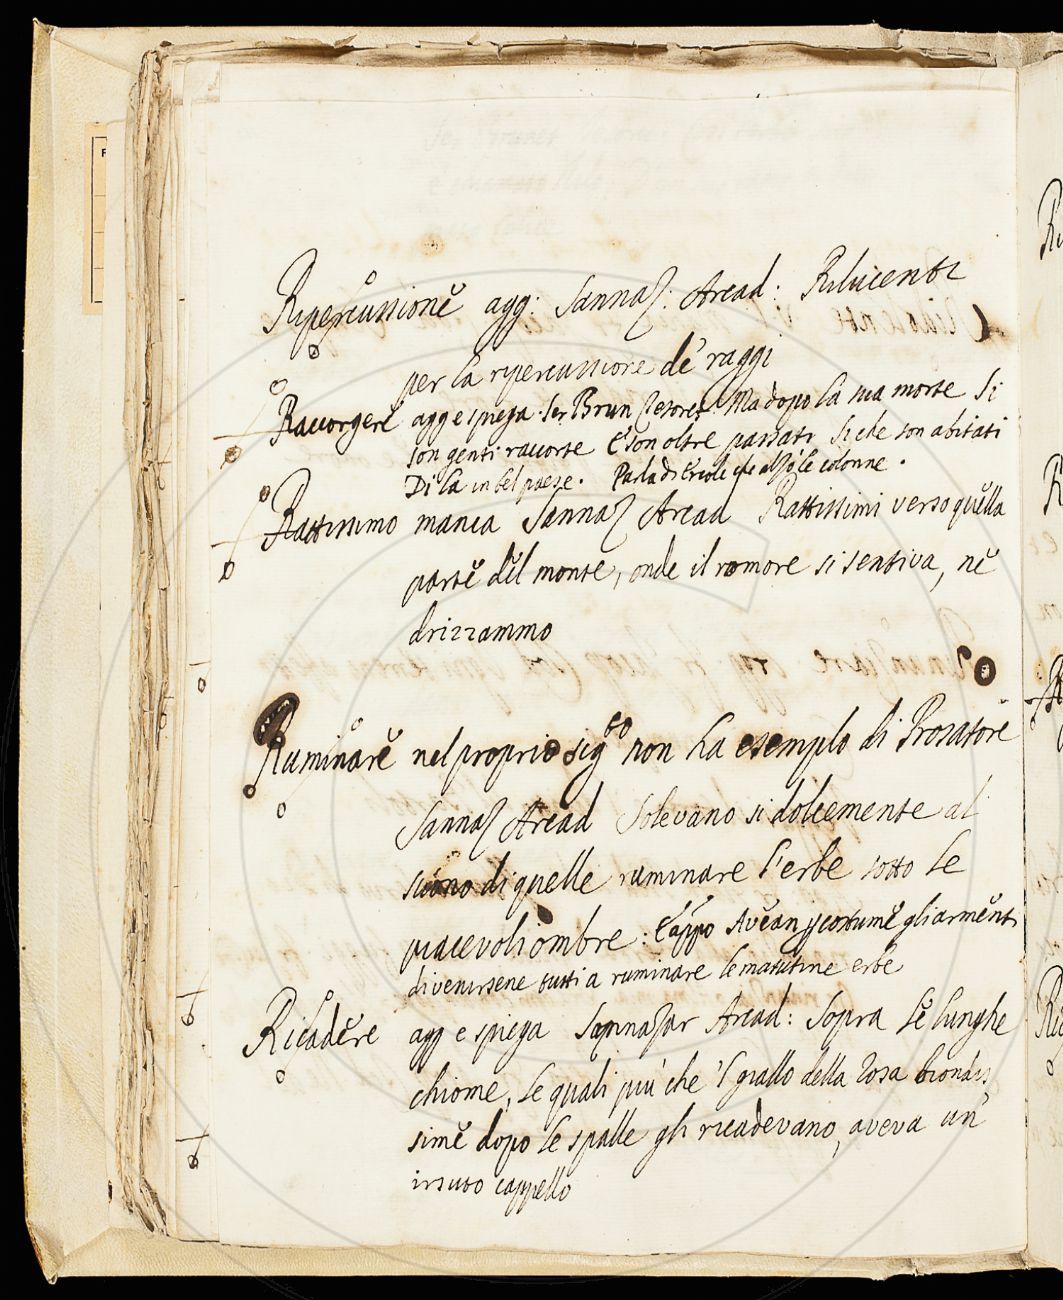 Ripercussione agg: Sannaz: Arcad: Rilucente
per la ripercussione de' raggi
Raccorgere agg e spiega. Ser Brun Tesoret Ma dopo la sua morte Si
son genti raccorte E son oltre passati Si che son abitati
Di la in bel paese. Parla di Ercole che alzò le colonne.
Rattissimo manca Sannaz Arcad Rattissimi verso quella
parte del monte, onde il romore si sentiva, ne
drizzammo
Ruminare nel proprio sig.to non ha esemplo di Prosatore
Sannaz Arcad Solevano si dolcemente al
suono di quelle ruminare l'erbe sotto le
piacevoli ombre. E appo Avean p costume gli armenti
di venirsene tutti a ruminare le matutine erbe
Ricadere agg e spiega Sannazar Arcad: Sopra le lunghe
chiome, le quali più che 'l giallo della rosa biondis
sime dopo le spalle gli ricadevano, aveva un'
irsuto cappello